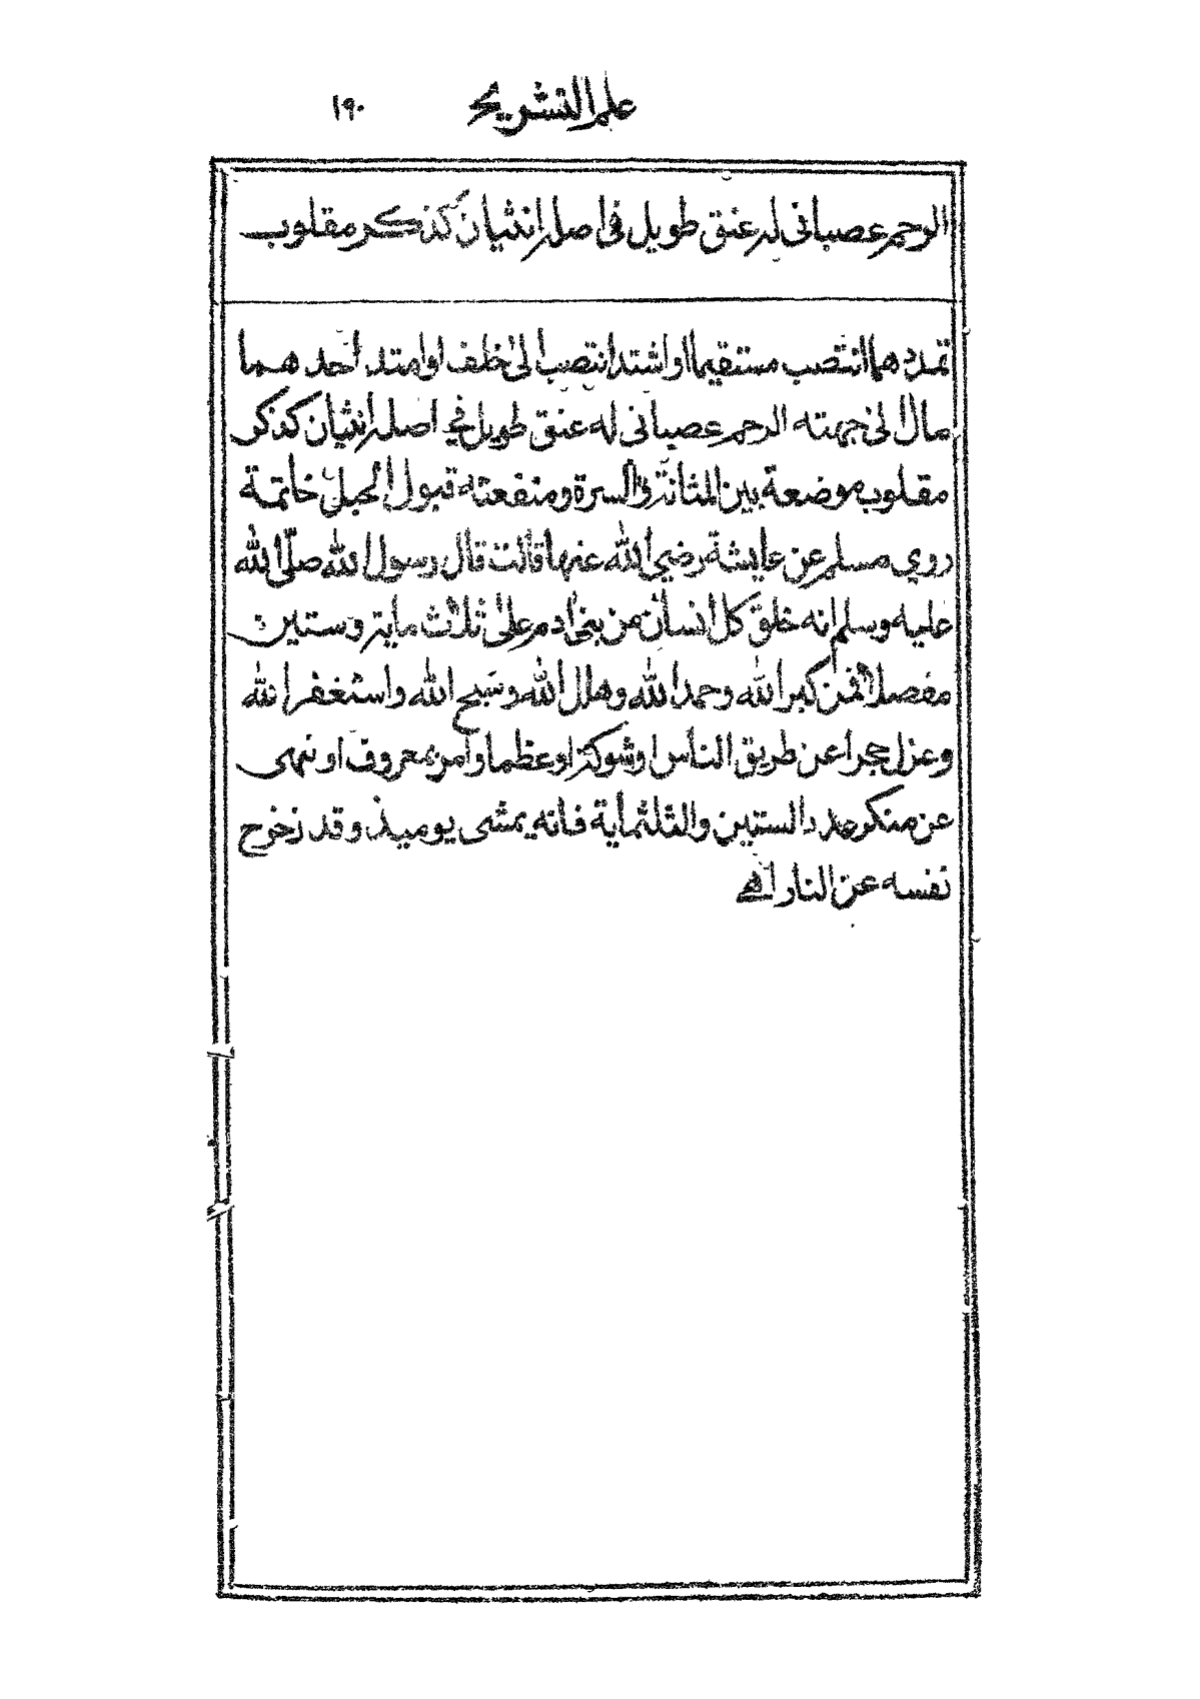 علم التشريح ١٩٠
الرحم عصباني له عنق طويل في اصله انثيان كذكر مقلوب
تمددهما انتصب مستقيما او اشتد انتصب الى خلف او امتد احدهما
مال الى جهته الرحم عصباني له عنق طويل في اصله انثيان كذكر
مقلوب موضعة بين المثانة والسرة ومنفعته قبول الحبل خاتمة
روي مسلم عن عايشة رضي الله عنها قالت قال رسول الله صلّى الله
عليه وسلم انه خلق كل انسان من بنى ادم على ثلاث ماية وستين
مفصلا فمن كبر الله وحمد الله وهلل الله وسبح الله واستغفر الله
وعزل حجرا عن طريق الناس او شوكة او عظما وامر بمعروف او نهى
عن منكر عدد الستين والثلثماية فانه يمشى يوميذ وقد زخرح
نفسه عن النار اهـ